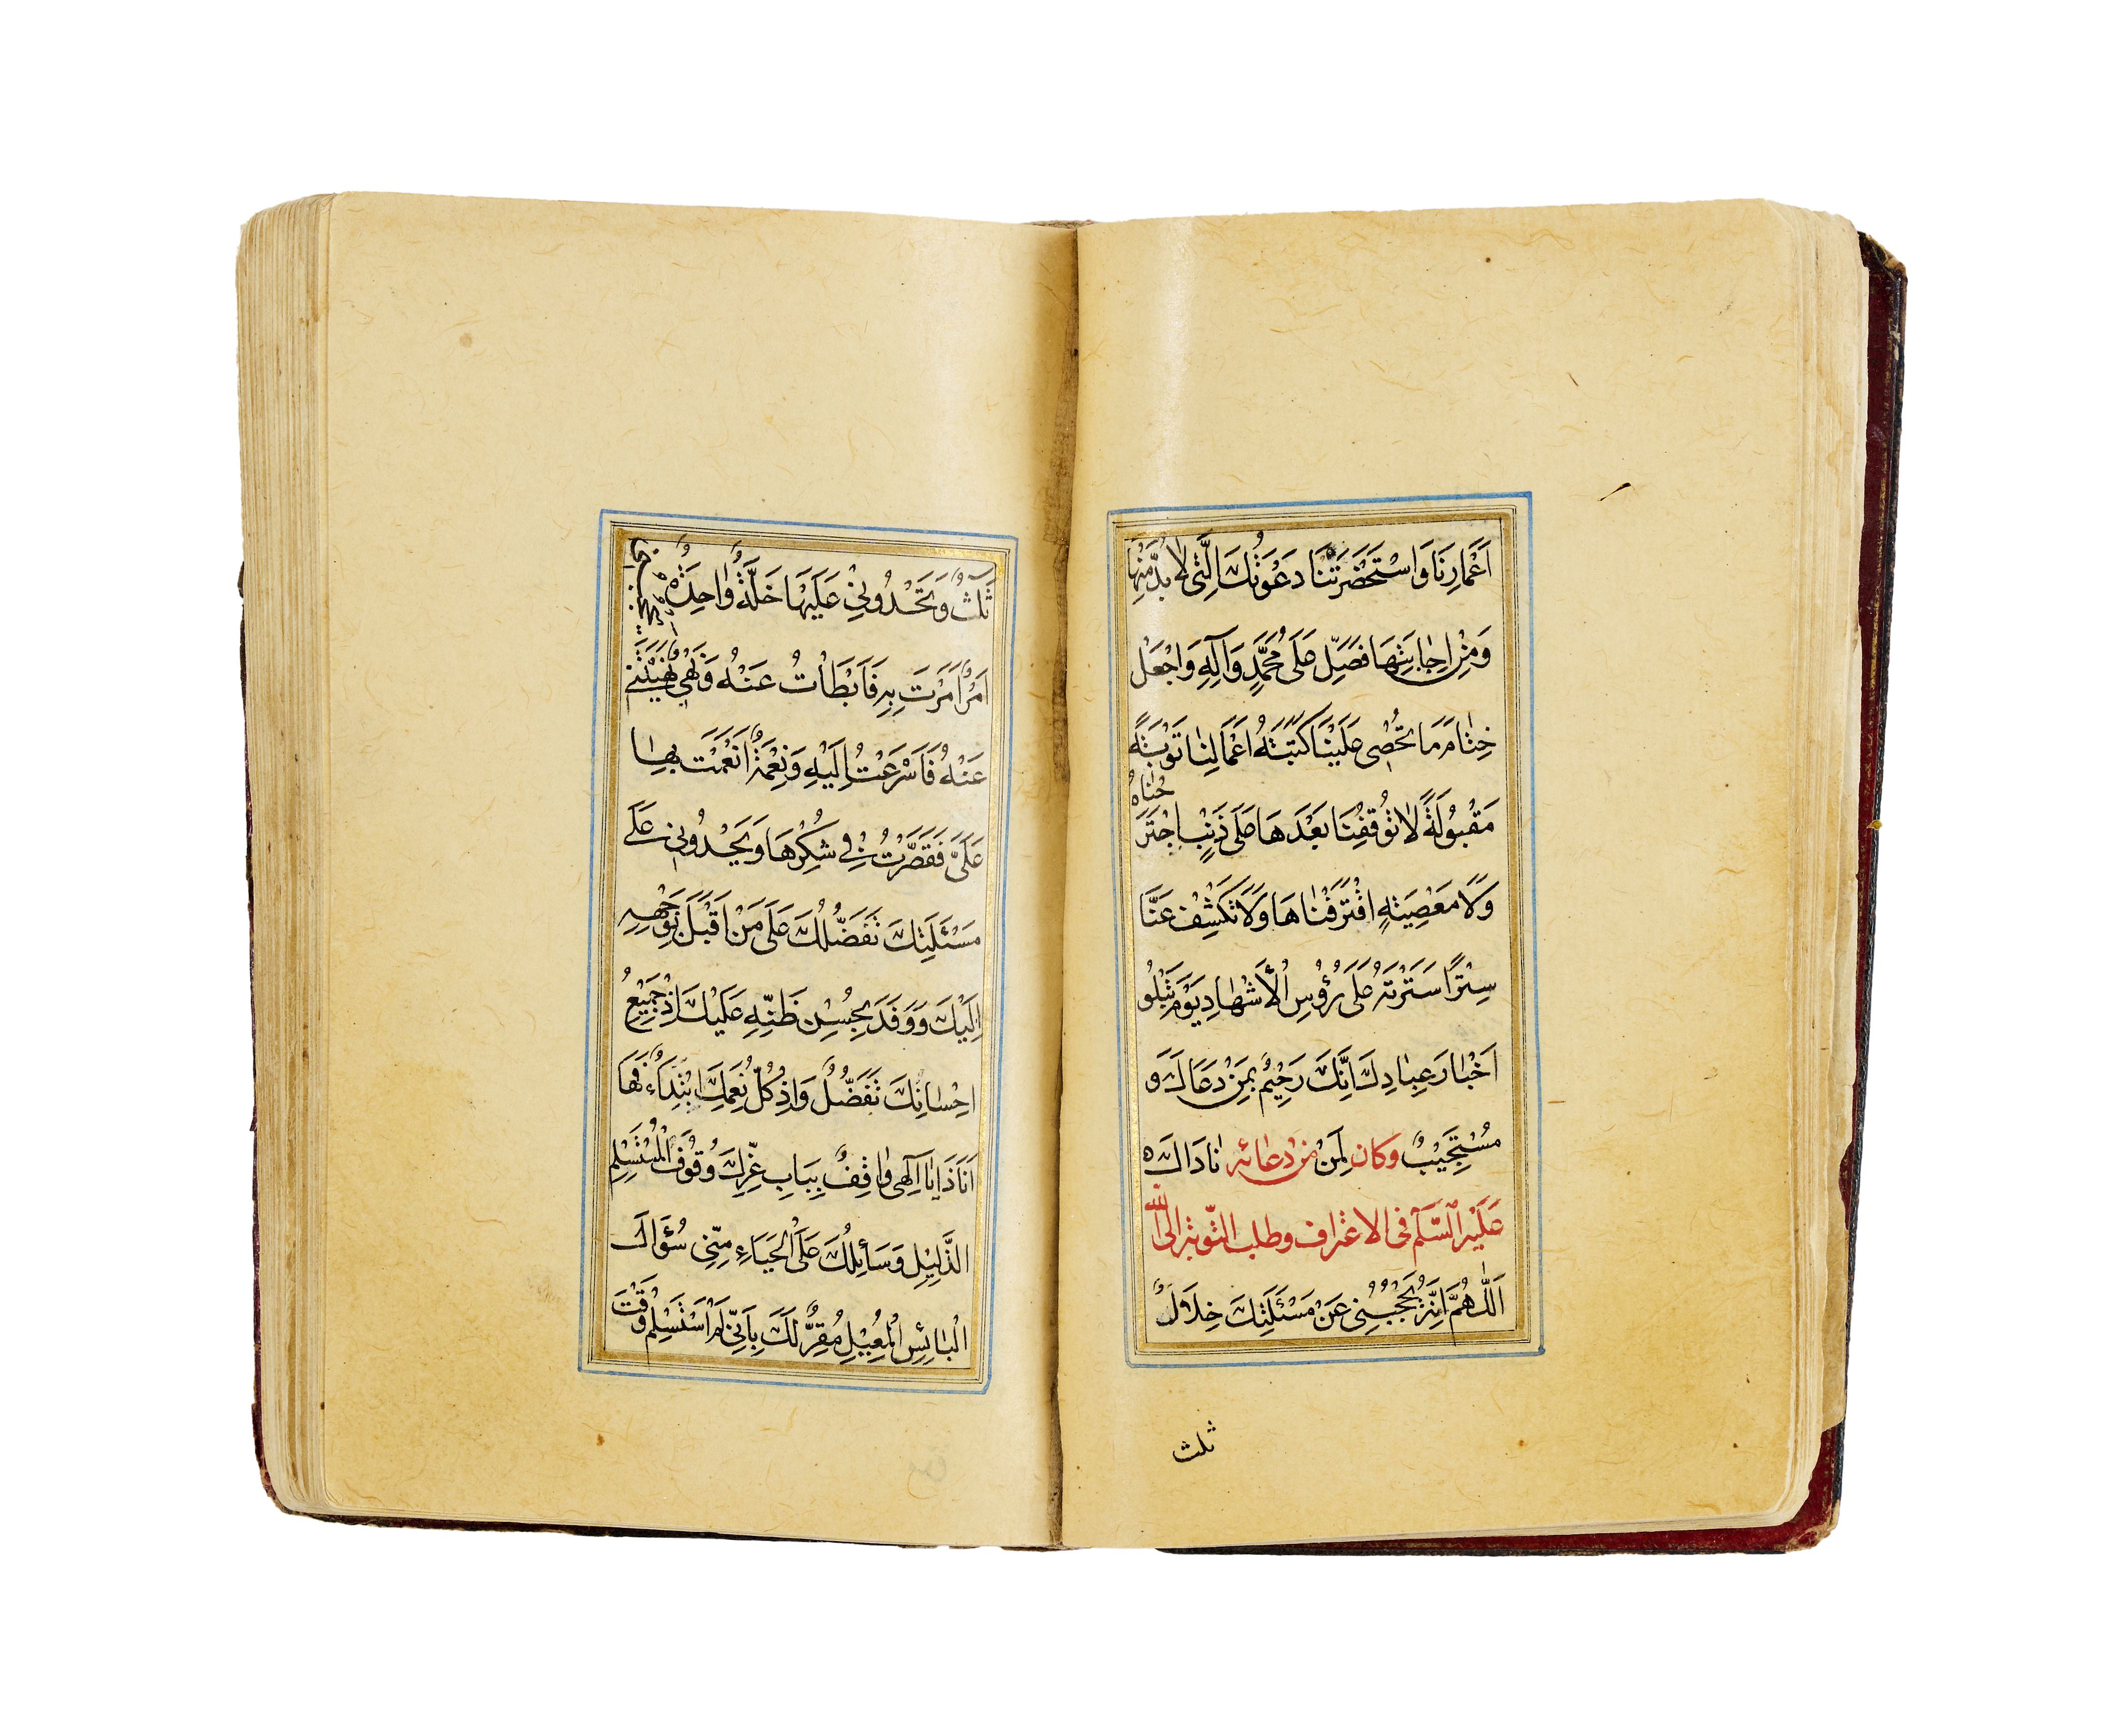 اَعْمارِنَا وَاسْتَحْضَرَتْنَا دَعْوَتُكَ الَّتِى لاٰ بُدَّ مِنْهَا
وَمِنْ اِجٰابَتِهَا فَصَلِّ عَلَى مُحَمَّدٍ وَآلِهِ وَاجْعَلْ
خِتٰامَ مَا تُحْصِى عَلَيْنَا كَتَبَةُ اَعْمَالِنٰا تَوْبَةً
مَقْبُولَةً لاٰ تُوقِفُنَا بَعْدَهَا عَلَى ذَنْبٍ اجْتَرَحْنٰاهُ
وَلاَ مَعْصِيَةٍ اقْتَرَفْنٰاهَا وَلاَ تَكْشِفْ عَنَّا
سِتْرًا سَتَرْتَهُ عَلَى رُؤُسِ الْأَشْهٰادِ يَوْمَ تَبْلُو
اَخْبٰارَ عِبٰادِكَ اِنَّكَ رَحِيْمٌ بِمَنْ دَعَاكَ وَ
مُسْتَجِيْبٌ لِمَنْ نٰادَاكَ ه وَكان مِنْ دُعٰائِه
عَلَيْهِ السَّلَم فى الاعْتراف وطلب التّوبة الى الله
اَللّٰهُمَّ اِنَّهُ يَحْجُبُنِى عَنْ مَسْئَلَتِكَ خِلاَلٌ
ثلث
ثَلٰثٌ وَتَحْدُونِىْ عَلَيْهَا خَلَّةٌ وٰاحِدَةٌ يحجبنى
اَمْرٌ اَمَرْتَ بِهِ فَاَبْطَأْتُ عَنْهُ وَنَهْىٌ نَهَيْتَنِى
عَنْهُ فَاَسْرَعْتُ اِلَيْهِ وَنِعْمَةٌ اَنْعَمْتَ بِهٰا
عَلَىَّ فَقَصَّرْتُ فِى شُكْرِهَا وَيَحْدُونِى عَلَى
مَسْئَلَتِكَ تَفَضُّلُكَ عَلَى مَنْ اَقْبَلَ بِوَجْهِهِ
اِلَيْكَ وَوَفَدَ بِحُسْنِ ظَنِّهِ عَلَيْكَ اِذْ جَمِيْعُ
اِحْسٰانِكَ تَفَضُّلٌ وَاِذْ كُلُّ نِعَمِكَ ابْتِدَاءٌ فَهَا
اَنَا ذَا يٰا اِلٰهِى وٰاقِفٌ بِبَابِ عِزِّكَ وُقُوفَ الْمُسْتَسْلِمِ
الذَّلِيْلِ وَسَائِلُكَ عَلَى الْحَيَاءِ مِنِّى سُؤَالَ
الْبٰائِسِ الْمُعِيْلِ مُقِرٌّ لَكَ بِاَنِّى لَمْ اَسْتَسْلِمْ وَقْتَ